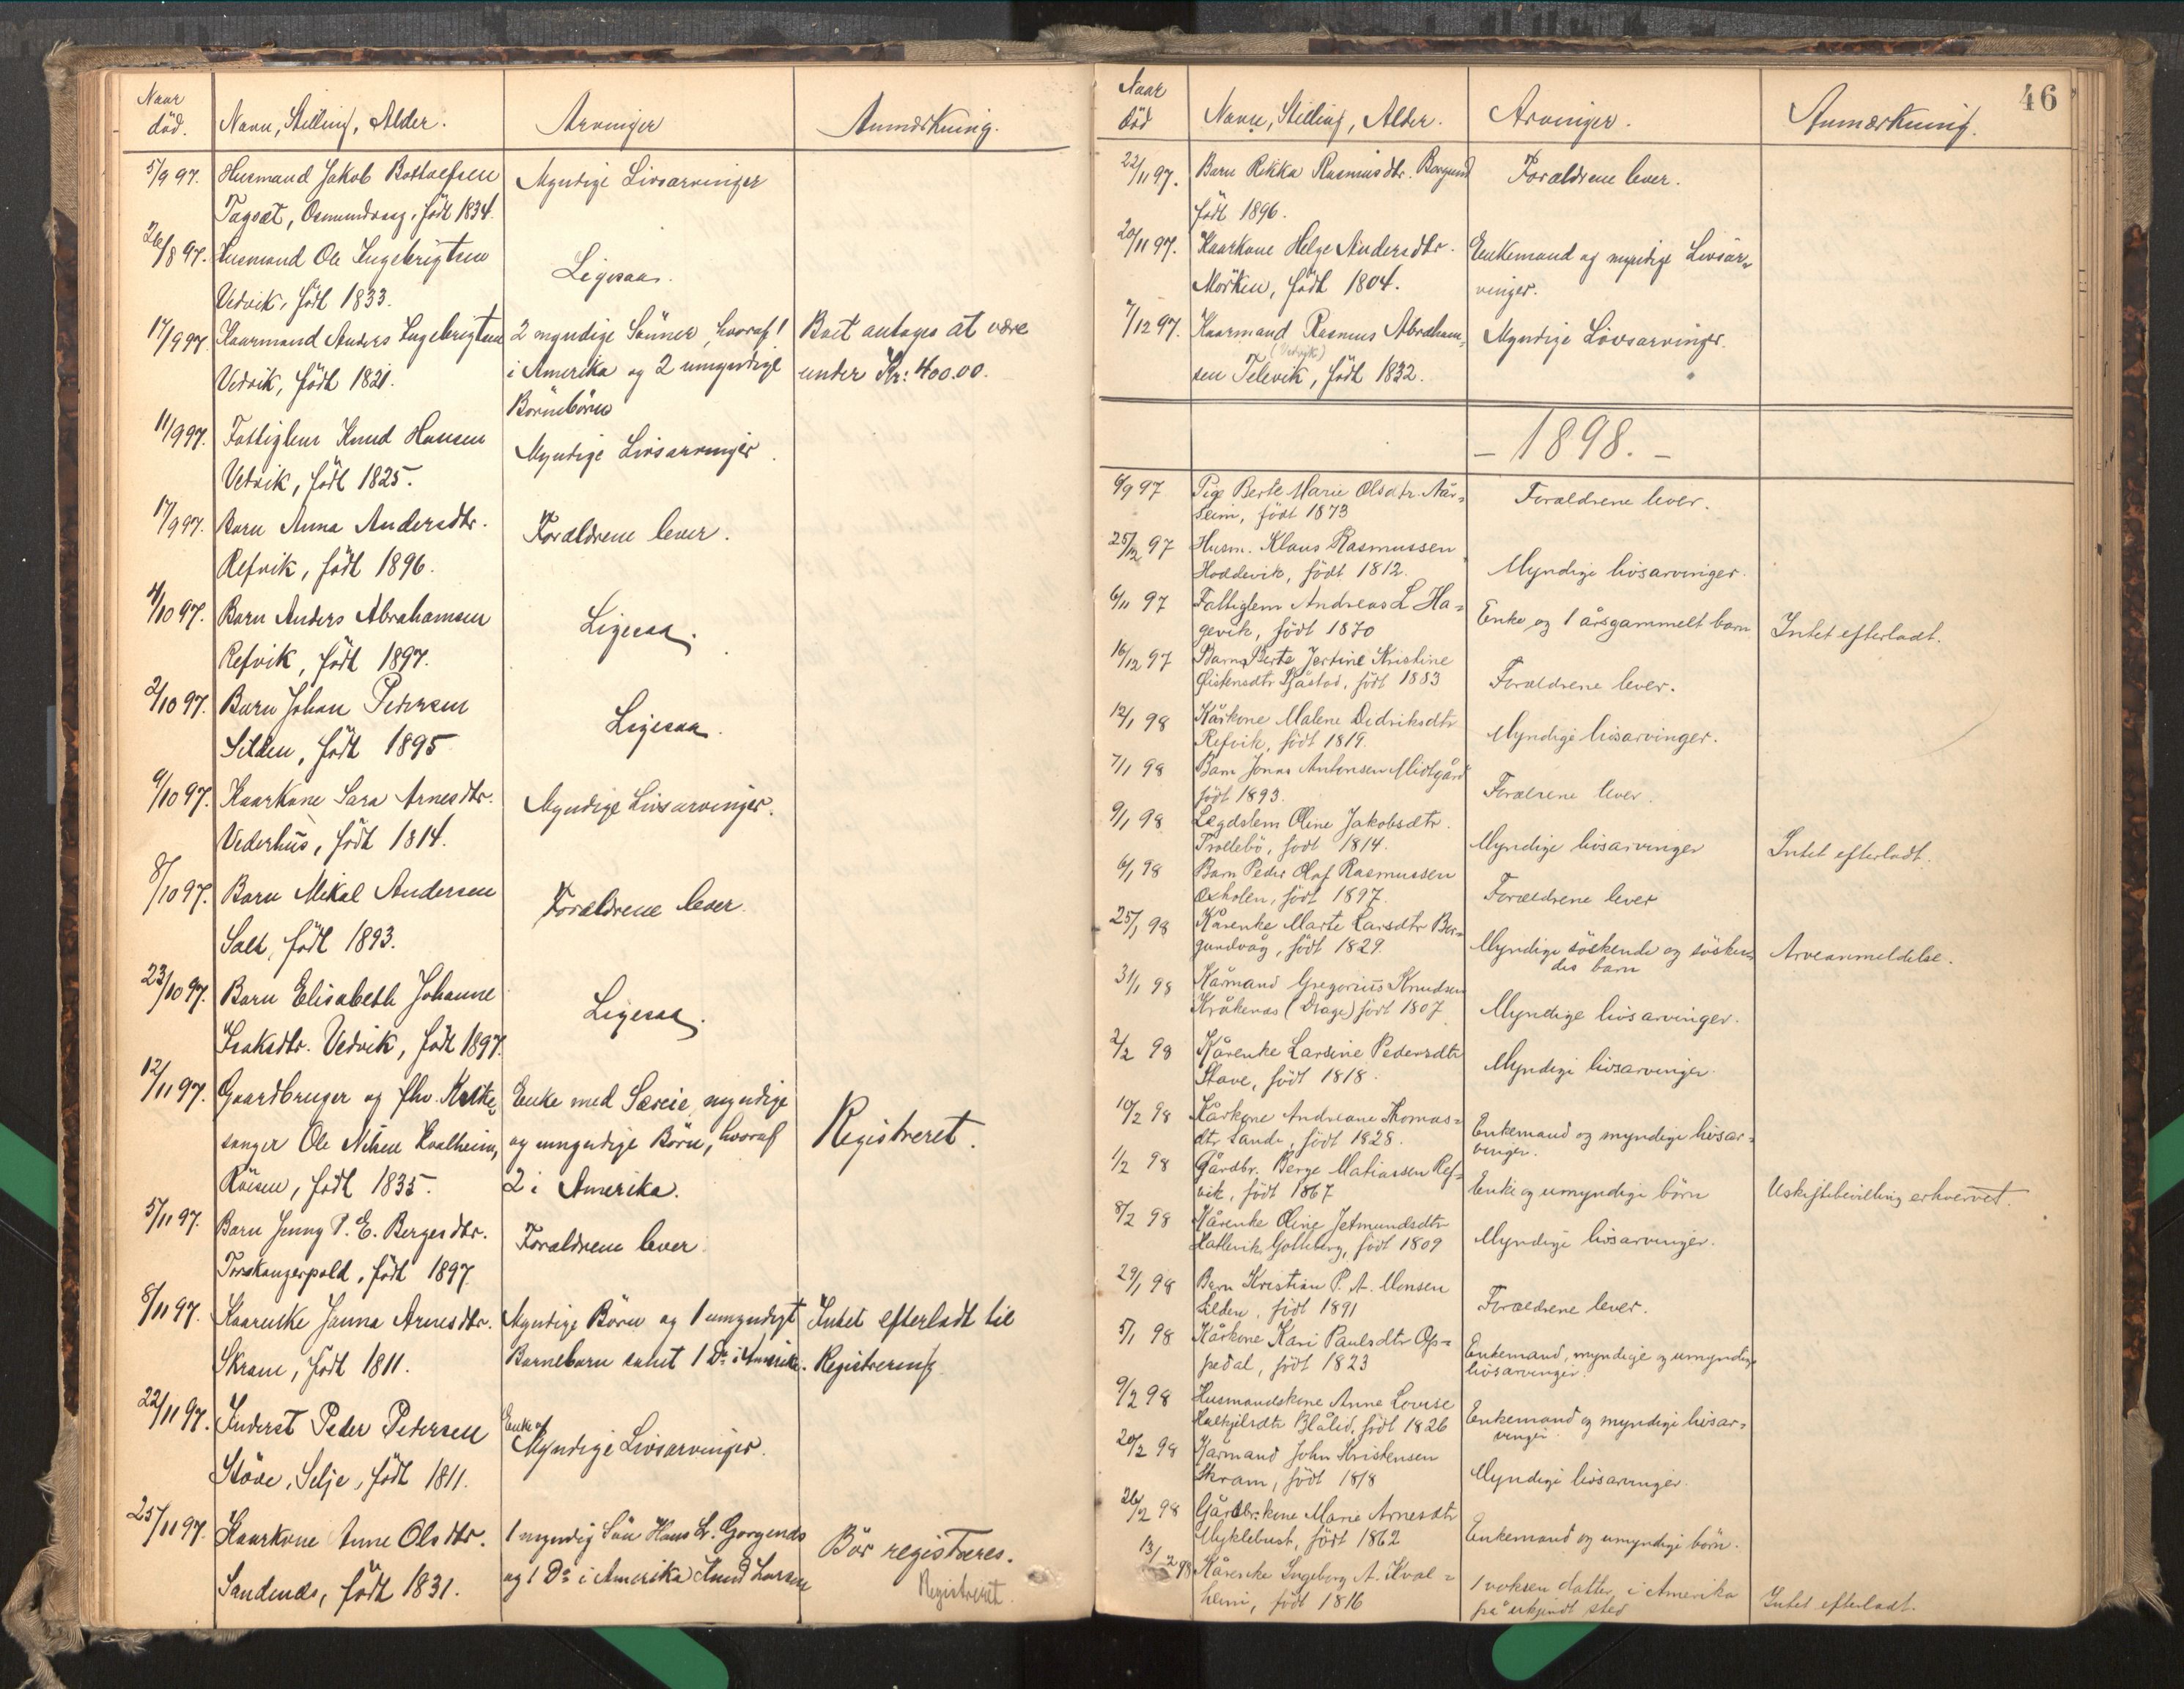 Naar død.
Navn, Stilling, Alder.
Arvinger
Anmærkning.
5/9 97. Husmand Jakob Bottolfsen
Myndige Livsarvinger
Tagsæt, Osmundvaag, født 1834.
26/8 97. Husmand Ole Ingebrigtsen
Ligesaa.
Vedvik, født 1833.
17/9 97. Kaarmand Anders Ingebrigtsen
2 myndige Sønner, hvoraf 1
Boet antages at være
Vedvik, født 1821.
i Amerika og 2 umyndige
under Kr: 400.00.
Børnebørn
11/9 97. Fattiglem Knud Hansen
Myndige Livsarvinger.
Vedvik, født 1825.
17/9 97. Barn Anna Andersdtr.
Forældrene lever.
Refvik, født 1896.
4/10 97. Barn Anders Abrahamsen
Ligesaa.
Refvik, født 1897.
2/10 97. Barn Johan Petersen
Ligesaa.
Silden, født 1895
9/10 97. Kaarkone Sara Arnesdtr.
Myndige Livsarvinger.
Vederhus, født 1814.
8/10 97. Barn Mikal Andersen
Forældrene lever.
Salt, født 1893.
23/10 97. Barn Elisabeth Johanne
Ligesaa.
Isaksdtr. Vedvik, født 1897.
12/11 97. Gaardbruger og fhv. Kirke-
Enke med Særeie, myndige
Registreret.
sanger Ole Nilsen Kvalheim,
og umyndige Børn, hvoraf
Røisen, født 1835.
2 i Amerika.
5/11 97. Barn Jenny P. E. Bergesdtr.
Forældrene lever.
Torskangerpold, født 1897.
8/11 97. Kaarenke Janna Arnesdtr.
Myndige Børn og 1 umyndigt
Intet efterladt til
Skram, født 1811.
Barnebarn samt 1 Do i Amerika.
Registrering
22/11 97. Inderst Peder Pedersen
Enke og
Myndige Livsarvinger.
Støve, Selje, født 1811.
25/11 97. Kaarkone Anne Olsdtr.
1 myndig Søn Hans L. Gorgenæs
Bør registreres.
Sandenæs, født 1831.
og 1 Do i Amerika Knud Larsen
Registreret.
46
Naar død
Navn, Stilling, Alder.
Arvinger.
Anmærkning.
22/11 97. Barn Rikka Rasmusdtr. Borgund
Forældrene lever.
født 1896.
20/11 97. Kaarkone Helge Andersdtr.
Enkemand og myndige Livsar-
Mørken, født 1804.
vinger.
7/12 97. Kaarmand Rasmus Abraham-
Myndige Livsarvinger.
(Vedvik)
sen Televik, født 1832.
- 1898. -
6/9 97 Pige Berte Marie Olsdtr. Når-
Forældrene lever.
seim, født 1873
25/12 97 Husm. Klaus Rasmussen
Myndige livsarvinger.
Hoddevik, født 1812.
6/11 97 Fattiglem Andreas L Ha-
Enke og 1 årsgammelt barn
Intet efterladt.
gevik, født 1870
16/12 97 Barn Berte Jertine Kristine
Forældrene lever.
Eistensdtr Sjåstad, født 1883
12/1 98 Kårkone Malene Didriksdtr
Myndige livsarvinger.
Refvik, født 1819.
7/1 98 Barn Jonas Antonsen Midtgård
Forælrene lever.
født 1893.
9/1 98 Lægdslem Oline Jakobsdtr.
Myndige livsarvinger
Intet efterladt.
Trollebø, født 1814.
6/1 98 Barn Peder Olaf Rasmussen
Forældrene lever
Oxholen, født 1897.
25/1 98 Kårenke Marte Larsdtr Bor-
Myndige søskende og søsken-
Arveanmeldelse.
gundvåg, født 1829.
des barn
31/1 98 Kårmand Gregorius Knudsen
Myndige livsarvinger.
Kråkenæs (Drage) født 1807
2/2 98 Kårenke Larsine Pedersdtr
Myndige livsarvinger
Stave, født 1818.
10/2 98 Kårkone Andreane Thomas-
Enkemand og myndige livsar-
dtr Sande, født 1828.
vinger.
1/2 98 Gårdbr. Berge Matiassen Ref-
Enke og umyndige børn
Uskiftebevilling erhvervet.
vik, født 1867
8/2 98 Kårenke Oline Jetmundsdtr
Myndige livsarvinger.
Hatlevik, Golleberg, født 1809
29/1 98 Barn Kristian P. A. Monsen
Forældrene lever.
Silden, født 1891
5/1 98 Kårkone Kari Paulsdtr Op-
Enkemand, myndige og umyndige
pedal, født 1823
livsarvinger.
9/2 98 Husmandskone Anne Lovise
Enkemand og myndige livsar-
Salkjelsdtr Blålid, født 1826
vinger.
20/2 98 Kårmand John Kristensen
Myndige livsarvinger.
Skram, født 1818
26/2 98 Gårdbr.kone Marie Arnesdtr
Enkemand og umyndige børn.
Myklebust, født 1862
13/2 98 Kårenke Ingeborg A. Kval-
1 voksen datter, i Amerika
heim, født 1816
på ukjendt sted
Intet efterladt.